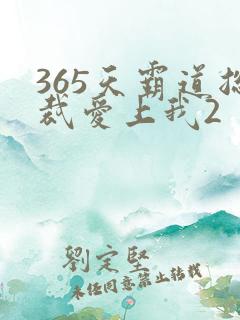 365天霸道总
裁爱上我2
劉定堅
未经同意禁止转载